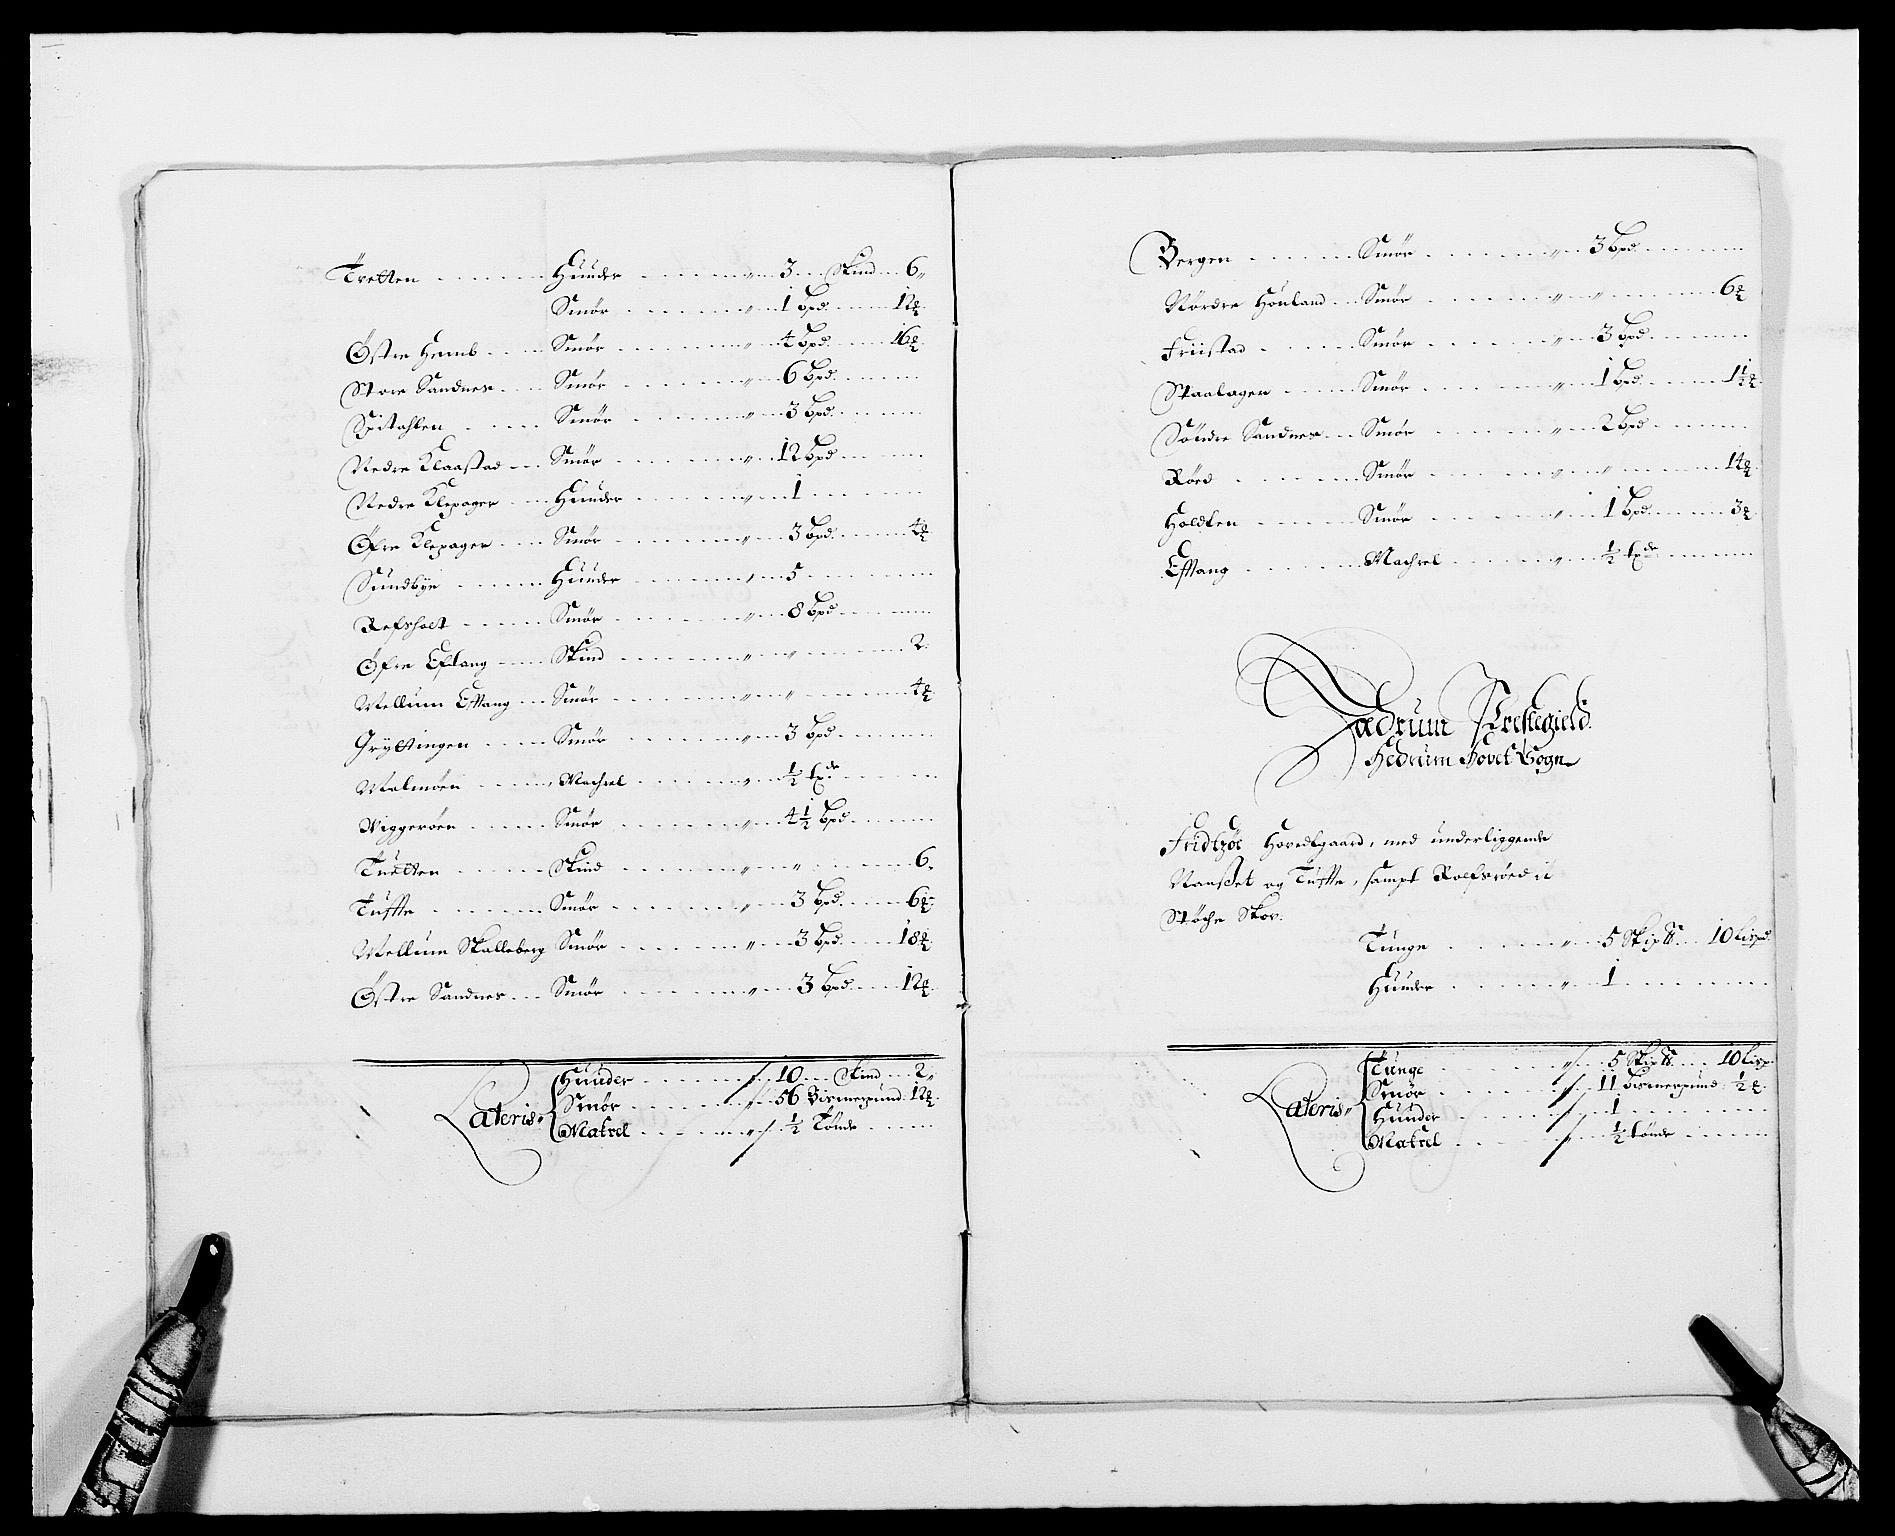 Tretten Huuder 3 Skind 6
Smør 1 Bpd. 12 ℔
Østre Hemb Smør 4 Bpd. 16 ℔
Store Sandnes Smør 6 Bpd.
Smør 3 Bpd.
Nedre Klaastad Smør 12 Bpd
Nedre Klepager Huuder 1
Øfre Klepager Smør 3 Bpd. 4 ℔
Sundbye Huuder 5
Refsholt Smør 8 Bpd
Øfre Eftang Skind 2
Mellum Eftang Smør 4 ℔
Gryttingen Smør 3 Bpd
Malmøen Machrel ½ tde
Wiggerøen Smør 4½ Bpd
Tuetten Skind 6
Tuffte Smør 3 Bpd. 6 ℔
Mellum Skalleberg Smør 3 Bpd. 18 ℔
Østre Sandnes Smør 3 Bpd. 12 ℔
Lateris Huuder 10 Skind 2
Smør 56 Bismerpund 12 ℔
Makrel ½ Tønde
Bergen Smør 3 Bpd.
Nordre Houland Smør 6 ℔
Friistad Smør 3 Bpd
Staalager Smør 1 Bpd 1½ ℔
Søndre Sandnes Smør 2 Bpd
Røed Smør 14 ℔
Holdten Smør 1 Bpd. 3 ℔
Efftang Machrel ½ tde
Hædrum Prestegield.
Hedrum Hovet Sogn
Fridtzøe Hovedtgaard, med underliggende
Nanset og Tuffte, sampt Rolfsrøed i
Støche Skov.
Tunge 5 Skip℔ 10 Lispd.
Huuder 1
Lateris Tunge 5 Skip℔ 10 Lisp
Smør 11 Bismerpund ½ ℔
Huuder 1
Makrel ½ tønde